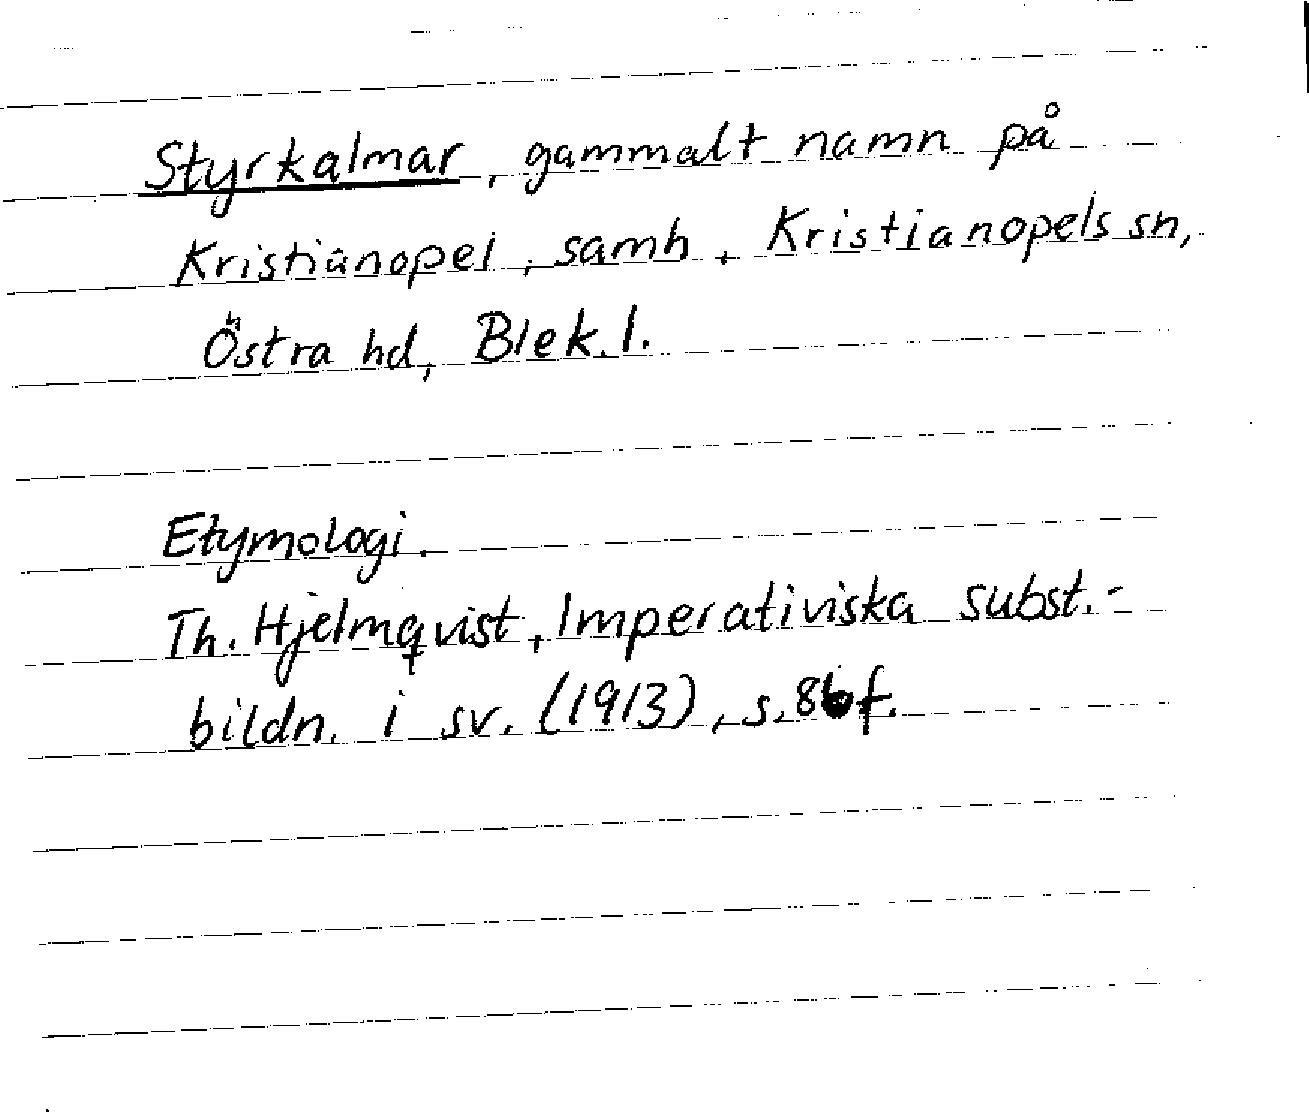 Styrkalmar, gammalt namn på
Kristianopel, samh, Kristianopels sn,
Östra hd, Blek.l.
Etymologi.
Th. Hjelmqvist, Imperativiska subst.-
bildn. i sv. (1913), s. 86f.